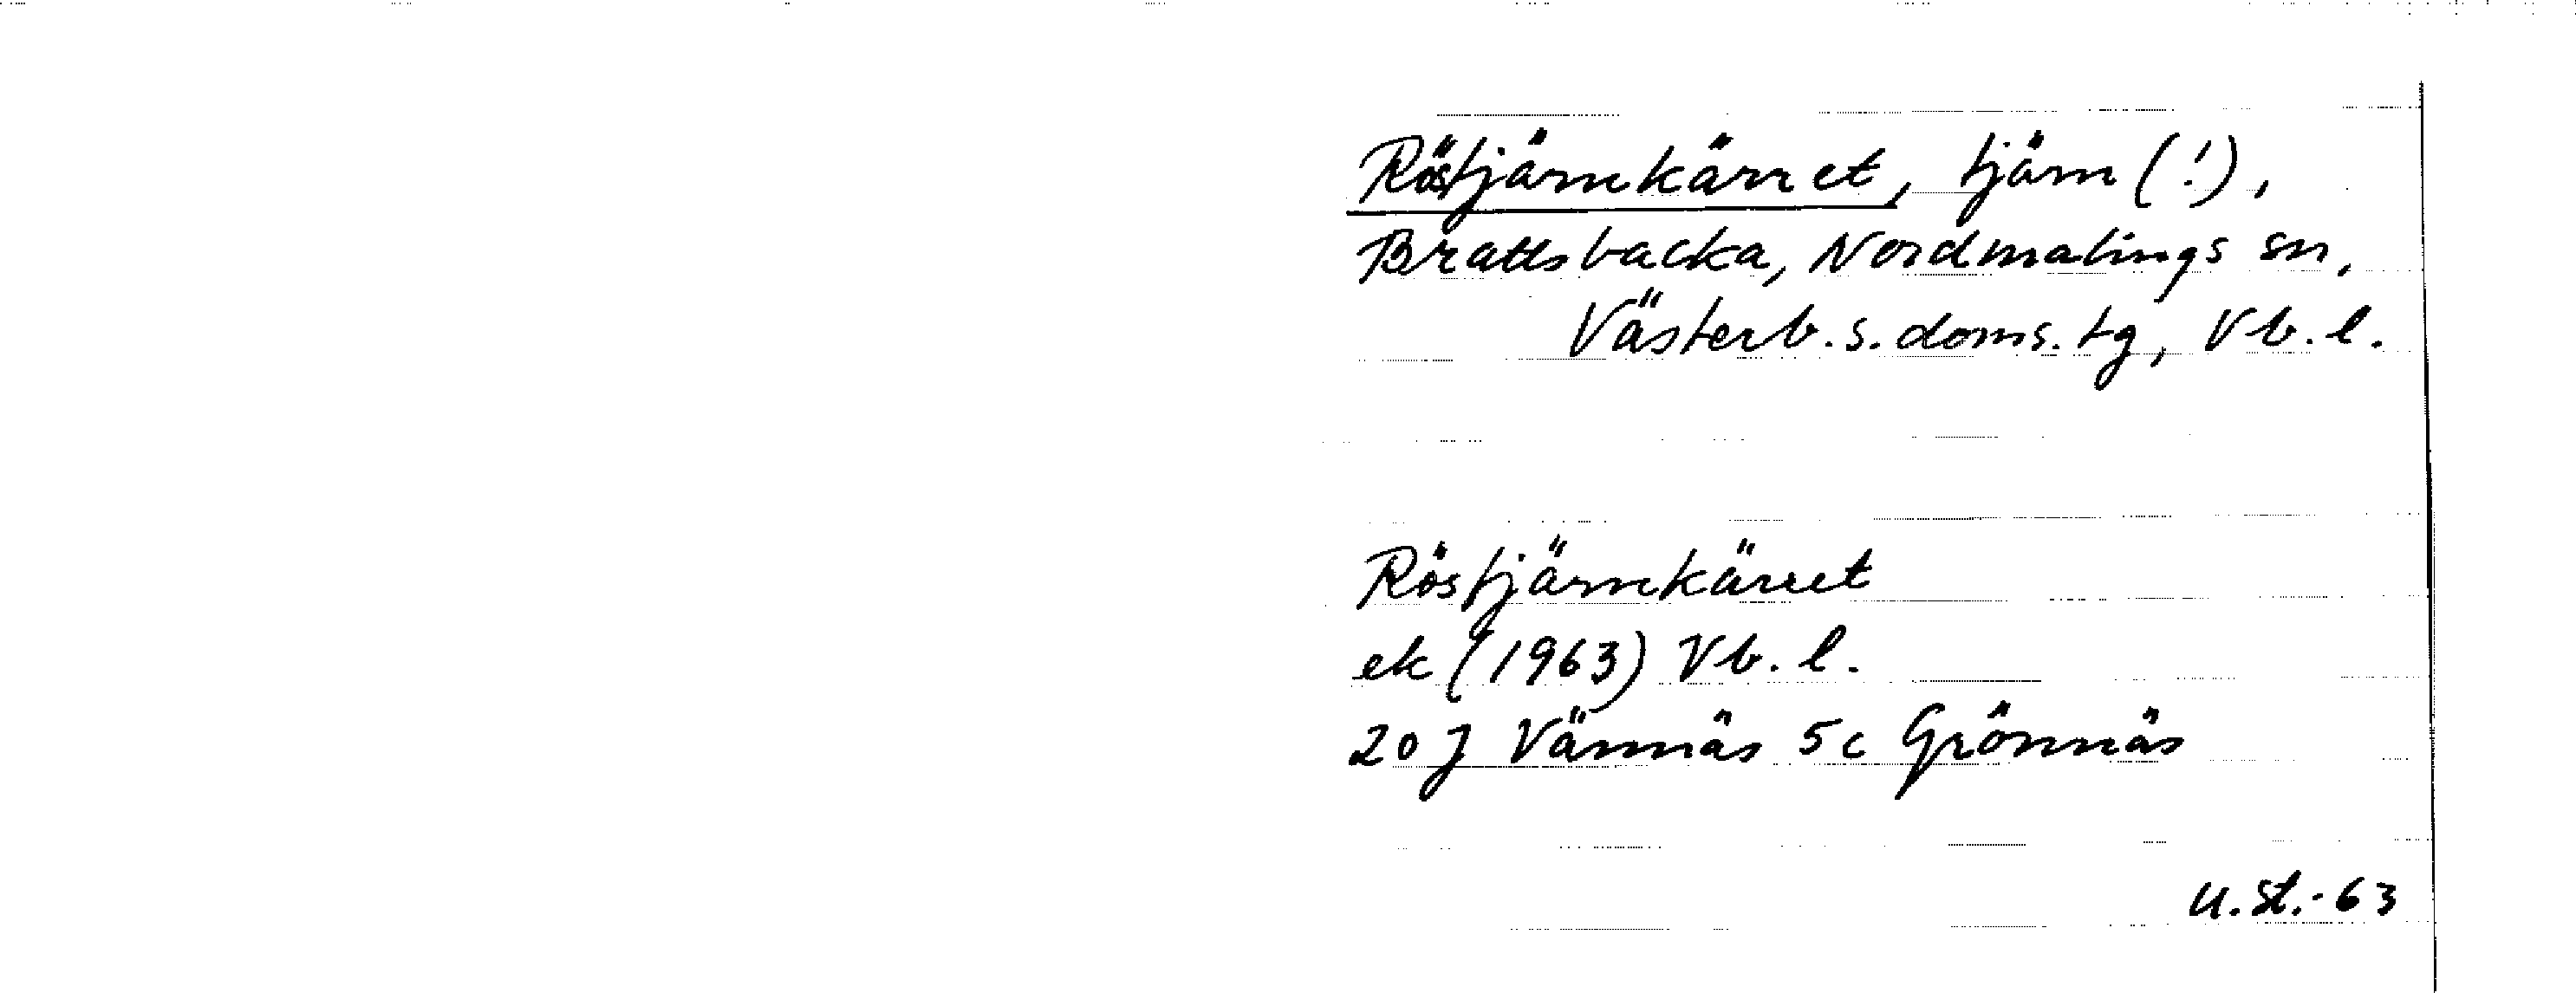 Röstjärnkärret, tjärn (!),
Brattsbacka, Nordmalings sn,
Västerb. s. doms. tg, Vb. l.
Röstjärnkärret
ek (1963) Vb. l.
20 J Vännäs 5c Grönnäs
U. St. -63